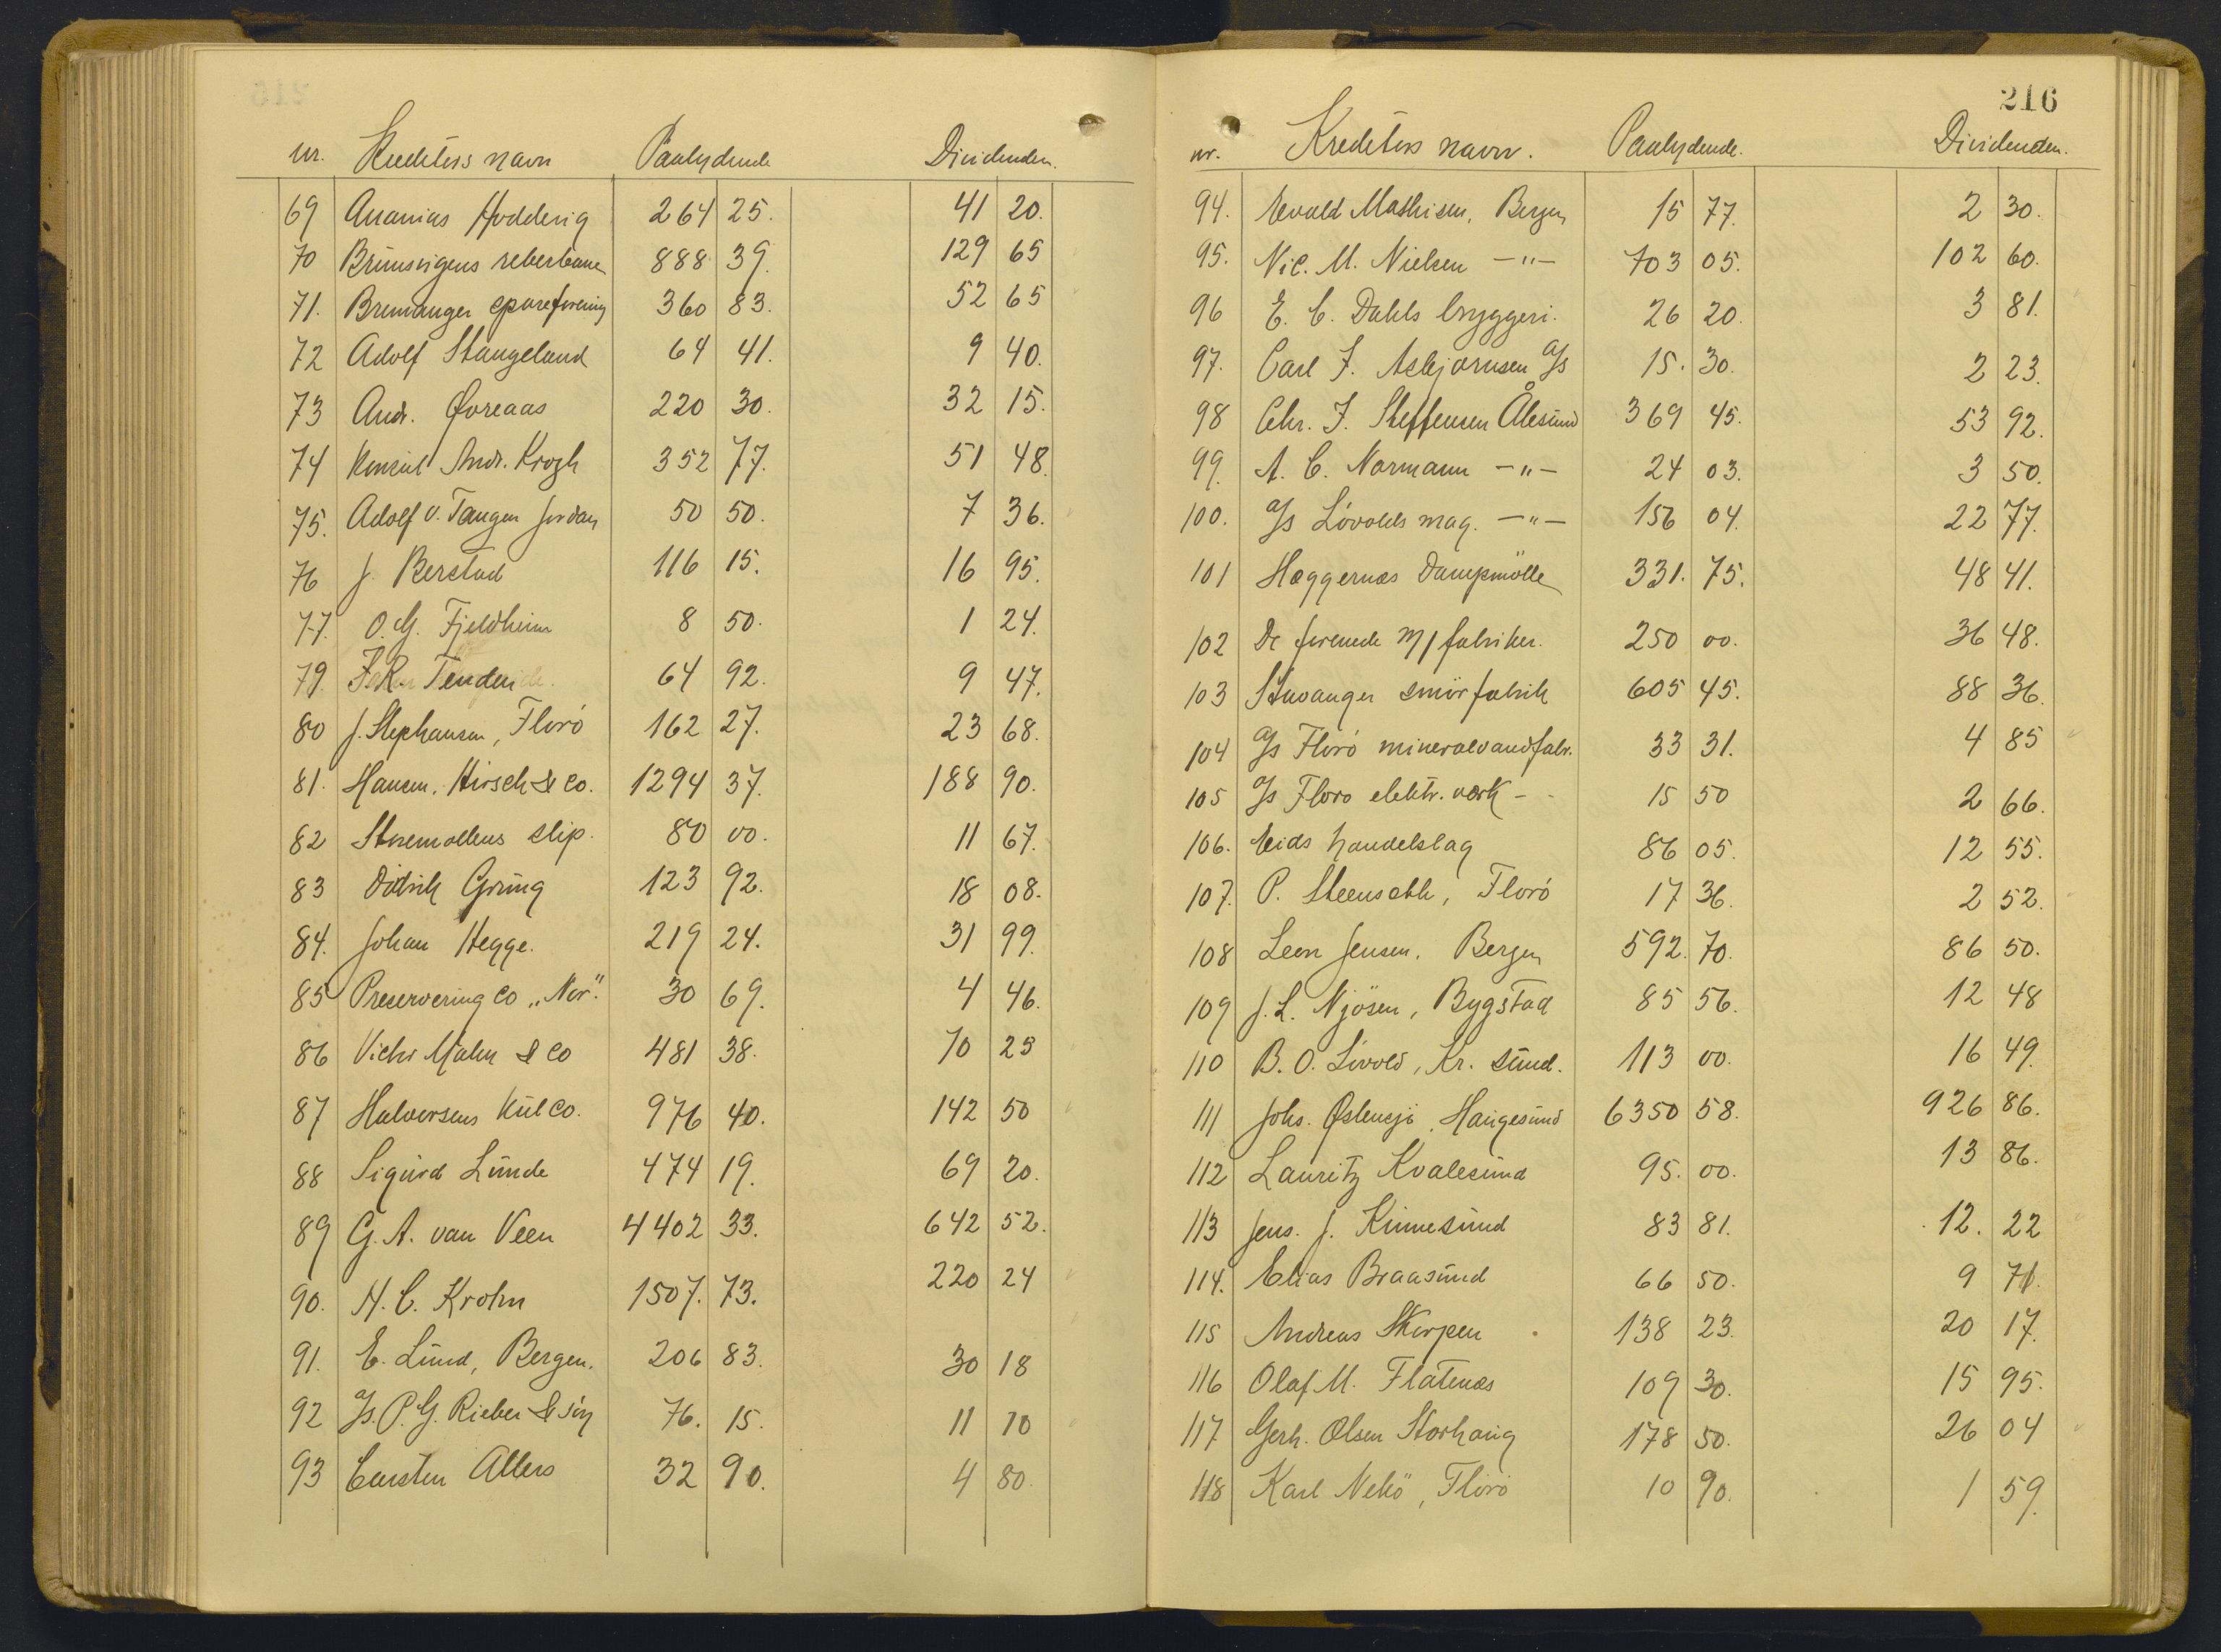 nr. Kreditors navn Paalydende Dividenden.
69 Ananias Hoddevig 264 25. 41 20.
70 Brunsvigens reberbane 888 39. 129 65
71. Bremanger spareforening 360 83. 52 65
72 Adolf Stangeland 64 41. 9 40.
73 Andr. Øvreaas 220 30. 32 15.
74 Konsul Andr. Krogh 352 77. 51 48.
75. Adolf v. Tangen Jordan 50 50. 7 36.
76 J. Berstad 116 15. 16 95.
77. O. G. Fjeldheim 8 50. 1 24.
79. 64 92. 9 47.
80 J. Stephansen, Florö 162 27. 23 68.
81. Hansen, Hirsch & Co. 1294 37. 188 90.
82 Storemøllens slip. 80 00. 11 67.
83 Didrik Grung 123 92. 18 08.
84. Johan Hegge. 219 24. 31 99.
85 Preservering Co „Nor". 30 69. 4 46.
86 Malm & Co 481 38. 70 25
87 Halvorsens Kul Co. 976 40. 142 50
88 Sigurd Lunde 474 19. 69 20.
89 G. A. van Veen 4402 33. 642 52.
90. H. C. Krohn 1507. 73. 220 24
91. E. Lund, Bergen. 206 83. 30 18
92 A/s. P. G. Rieber & Sön 76. 15. 11 10
93 Carsten Allers 32 90. 4 80.
216
nr. Kreditors navn. Paalydende. Dividenden.
94. Evald Mathisen, Bergen 15 77. 2 30.
95. Nic. M. Nielsen —"— 703 05. 102 60.
96 E. C. Dahls bryggeri. 26 20. 3 81.
97. Carl F. Asbjørnsen A/s 15. 30. 2 23.
98 Chr. F. Steffensen Ålesund 369 45. 53 92.
99. A. C. Normann —"— 24 03. 3 50.
100. A/s Lövolds mag. —"— 156 04. 22 77.
101 Hæggernæs Dampmölle 331. 75. 48 41.
102 De forenede M/ fabriker. 250 00. 36 48.
103 Stavanger smörfabrik 605 45. 88 36.
104 A/s Florö mineralvandfabr. 33 31. 4 85
105 A/s Florö elektr. værk - 15 50 2 66.
106. Eids handelslag 86 05. 12 55.
107. P. Steensæth, Florö 17 36. 2 52.
108 Leon Jensen, Bergen 592. 70. 86 50.
109 J. L. Njösen, Bygstad 85 56. 12 48
110 B. O. Lövold, Kr. sund. 113 00. 16 49.
111 Johs. Østensjö, Haugesund 6350 58. 926 86.
112 Lauritz Kvalesund 95. 00. 13 86.
113 Jens. J. Kinnesund 83 81. 12. 22
114. Elias Braasund 66 50. 9 71.
115 Andreas Skorpen 138 23. 20 17.
116 Olaf M. Flatenæs 109 30. 15 95.
117 Gerh. Olsen Storhaug 178 50. 26 04
118 Karl Nekö, Florö 10 90. 1 59.